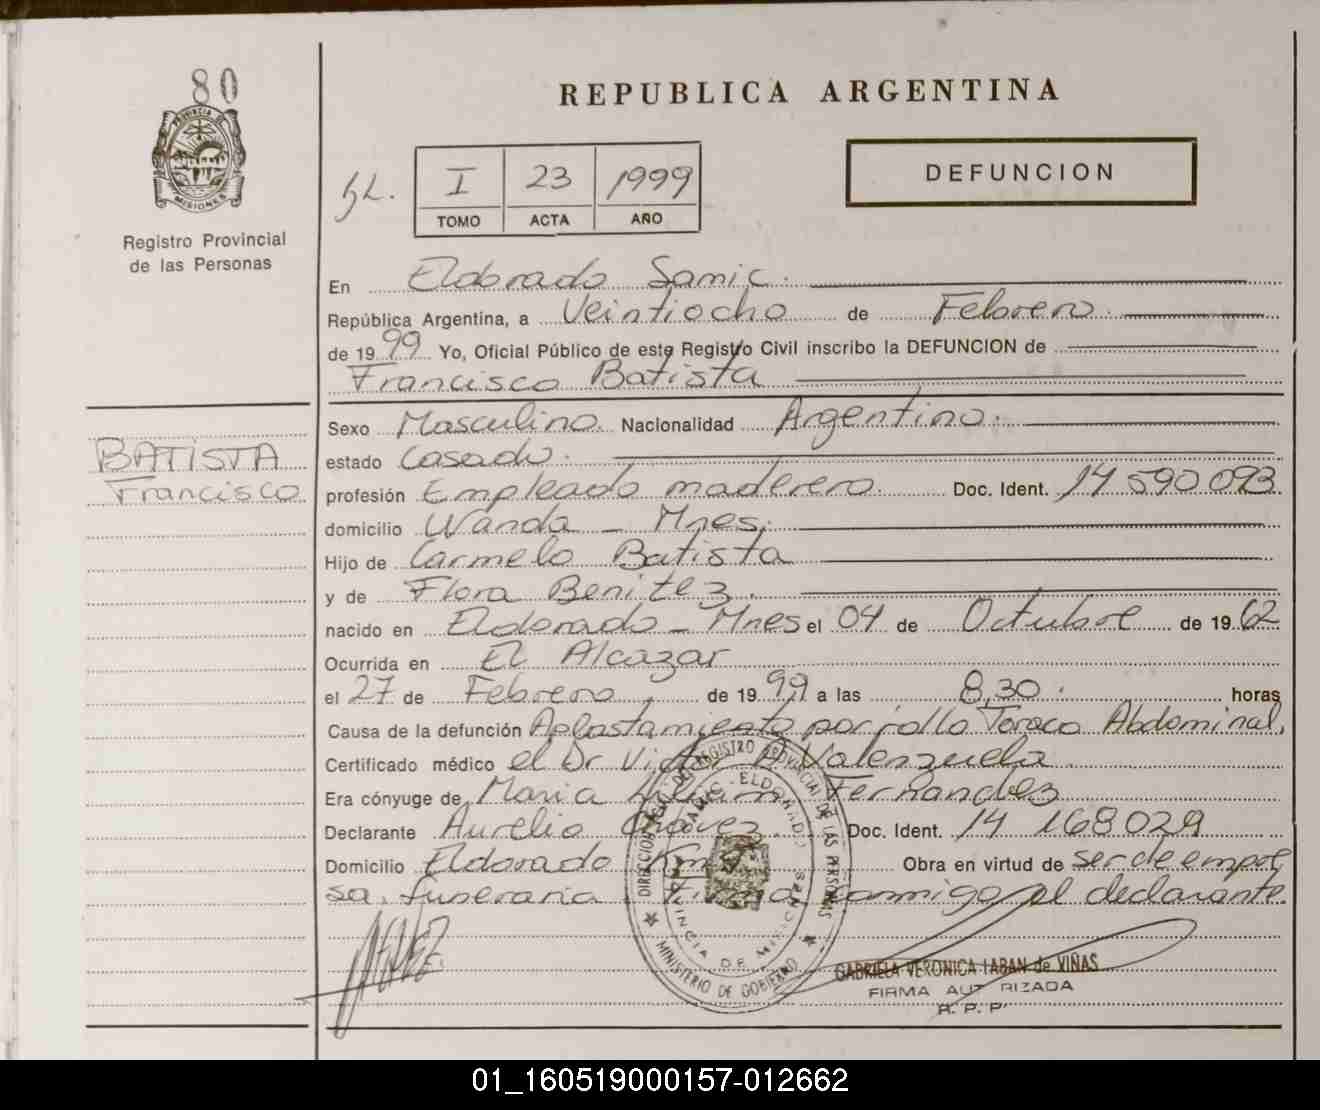 80
PROVINCIA DE MISIONES
Registro Provincial
de las Personas
REPUBLICA ARGENTINA
I 23 1999
TOMO ACTA AÑO
DEFUNCION
En Eldorado Samic.
República Argentina, a Veintiocho de Febrero.
de 1999 Yo, Oficial Público de este Registro Civil inscribo la DEFUNCION de
Francisco Batista
BATISTA
Francisco
Sexo Masculino. Nacionalidad Argentino.
estado Casado.
profesión Empleado maderero. Doc. Ident. 14 590 093
domicilio Wanda - Mnes.
Hijo de Carmelo Batista
y de Flora Benitez.
nacido en Eldorado - Mnes el 04 de Octubre de 1962
Ocurrida en El Alcazar
el 27 de Febrero de 1999 a las 8,30. horas
Causa de la defunción Aplastamiento por rollo Toraco Abdominal,
Certificado médico el Dr Victor Valenzuela.
Era cónyuge de Maria Fernandez
Declarante Aurelio Chavez. Doc. Ident. 14 168 029
Domicilio Eldorado Obra en virtud de ser de empre
sa. funeraria. Firma conmigo el declarante.
DIRECCION DEL REGISTRO PROVINCIAL DE LAS PERSONAS
MINISTERIO DE GOBIERNO
ELDORADO
PROVINCIA DE MISIONES
GABRIELA VERONICA LABAN de VIÑAS
FIRMA AUTORIZADA
R. P. P.
01_160519000157-012662